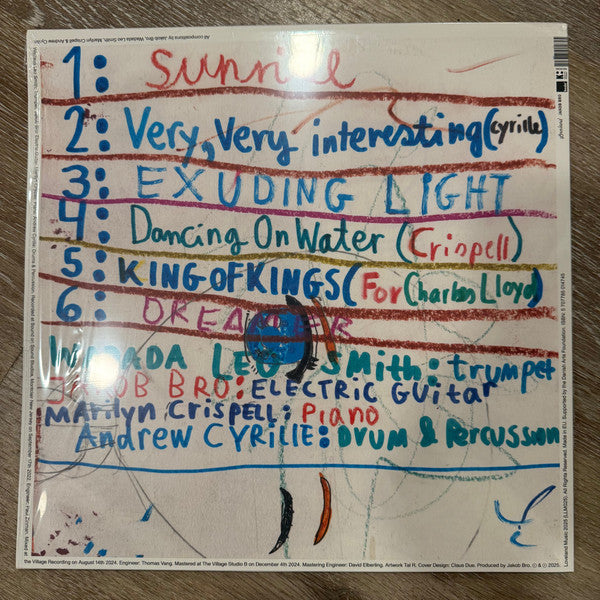 All compositions by Jakob Bro, Wadada Leo Smith, Marilyn Crispell & Andrew Cyrille
1: Sunrise
2: Very, Very interesting (cyrille)
3: EXUDING LIGHT
4: Dancing On Water (Crispell)
5: KING OF KINGS (For Charles Lloyd)
6: DREAMER
WADADA LEO SMITH: trumpet
JAKOB BRO: ELECTRIC GUitar
MARilyn CRispell: Piano
Andrew CYRILLE: DRUM & Percussion
the Village Recording on August 14th 2024. Engineer: Thomas Vang. Mastered at The Village Studio B on December 4th 2024. Mastering Engineer: David Elberling. Artwork Tal R. Cover Design: Claus Due. Produced by Jakob Bro. ℗ & © 2025.
Loveland Music 2025 (LLM025). All Rights Reserved. Made in EU. Supported by the Danish Arts Foundation. ISBN: 5 707785 014745